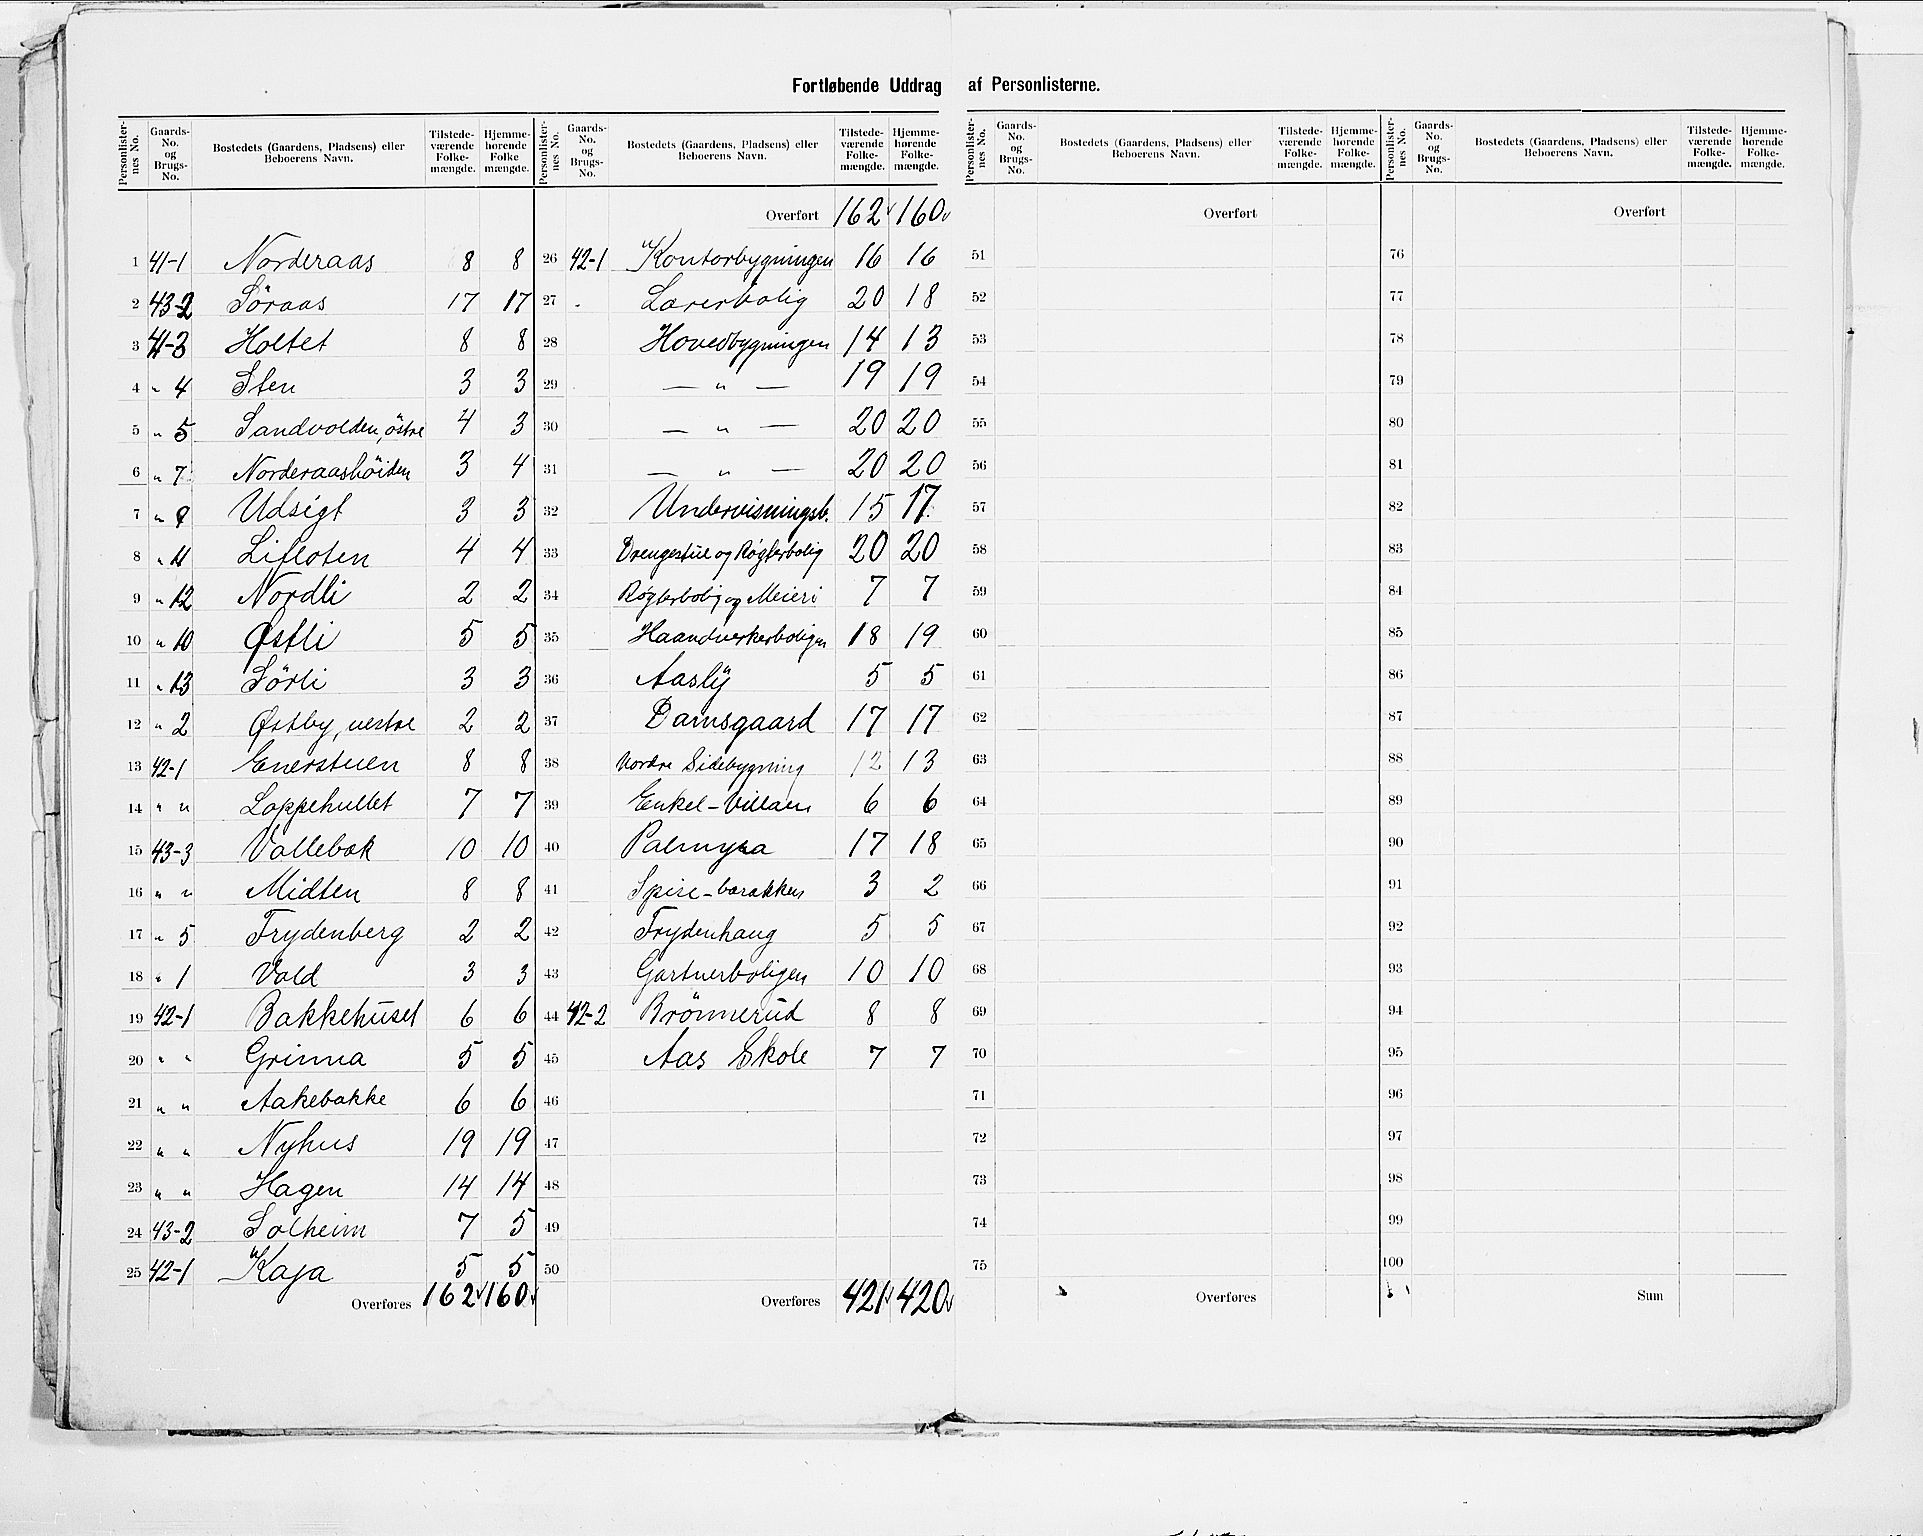 Fortløbende Uddrag af Personlisterne.
Personlisternes No. | Gaards-No. og Brugs-No. | Bostedets (Gaardens, Pladsens) eller Beboerens Navn. | Tilstedeværende Folkemængde. | Hjemmehørende Folkemængde.
1 41-1 Norderaas 8 8
2 43-2 Söraas 17 17
3 41-3 Holtet 8 8
4 " 4 Sten 3 3
5 " 5 Sandvolden, östre 4 3
6 " 7 Norderaashöiden 3 4
7 " 9 Udsigt 3 3
8 " 11 Lifloten 4 4
9 " 12 Nordli 2 2
10 " 10 Østli 5 5
11 " 13 Sörli 3 3
12 " 2 Østby, vestre 2 2
13 42-1 Enerstuen 8 8
14 " " Loppehullet 7 7
15 43-3 Vollebæk 10 10
16 " " Midten 8 8
17 " 5 Frydenberg 2 2
18 " 1 Vold 3 3
19 42-1 Bakkehuset 6 6
20 " " Grinna 5 5
21 " " Aakebakke 6 6
22 " " Nyhus 19 19
23 " " Hagen 14 14
24 43-2 Solheim 7 5
25 42-1 Kaja 5 5
Overføres 162 160
Personlisternes No. | Gaards-No. og Brugs-No. | Bostedets (Gaardens, Pladsens) eller Beboerens Navn. | Tilstedeværende Folkemængde. | Hjemmehørende Folkemængde.
Overført 162 160
26 42-1 Kontorbygningen 16 16
27 " Lærerbolig 20 18
28 Hovedbygningen 14 13
29 — " — 19 19
30 — " — 20 20
31 — " — 20 20
32 Undervisningsb. 15 17
33 Drengestue og Røgterbolig 20 20
34 Røgterbolig og Meieri 7 7
35 Haandverkerboligen 18 19
36 Aaslÿ 5 5
37 Damsgaard 17 17
38 Nordre Sidebygning 12 13
39 Enkel-Villaen 6 6
40 Palmyra 17 18
41 Spise-barakken 3 2
42 Frydenhaug 5 5
43 Gartnerboligen 10 10
44 42-2 Brönnerud 8 8
45 Aas Skole 7 7
46
47
48
49
50
Overføres 421 420
Personlisternes No. | Gaards-No. og Brugs-No. | Bostedets (Gaardens, Pladsens) eller Beboerens Navn. | Tilstedeværende Folkemængde. | Hjemmehørende Folkemængde.
Overført
51
52
53
54
55
56
57
58
59
60
61
62
63
64
65
66
67
68
69
70
71
72
73
74
75
Overføres
Personlisternes No. | Gaards-No. og Brugs-No. | Bostedets (Gaardens, Pladsens) eller Beboerens Navn. | Tilstedeværende Folkemængde. | Hjemmehørende Folkemængde.
Overført
76
77
78
79
80
81
82
83
84
85
86
87
88
89
90
91
92
93
94
95
96
97
98
99
100
Sum